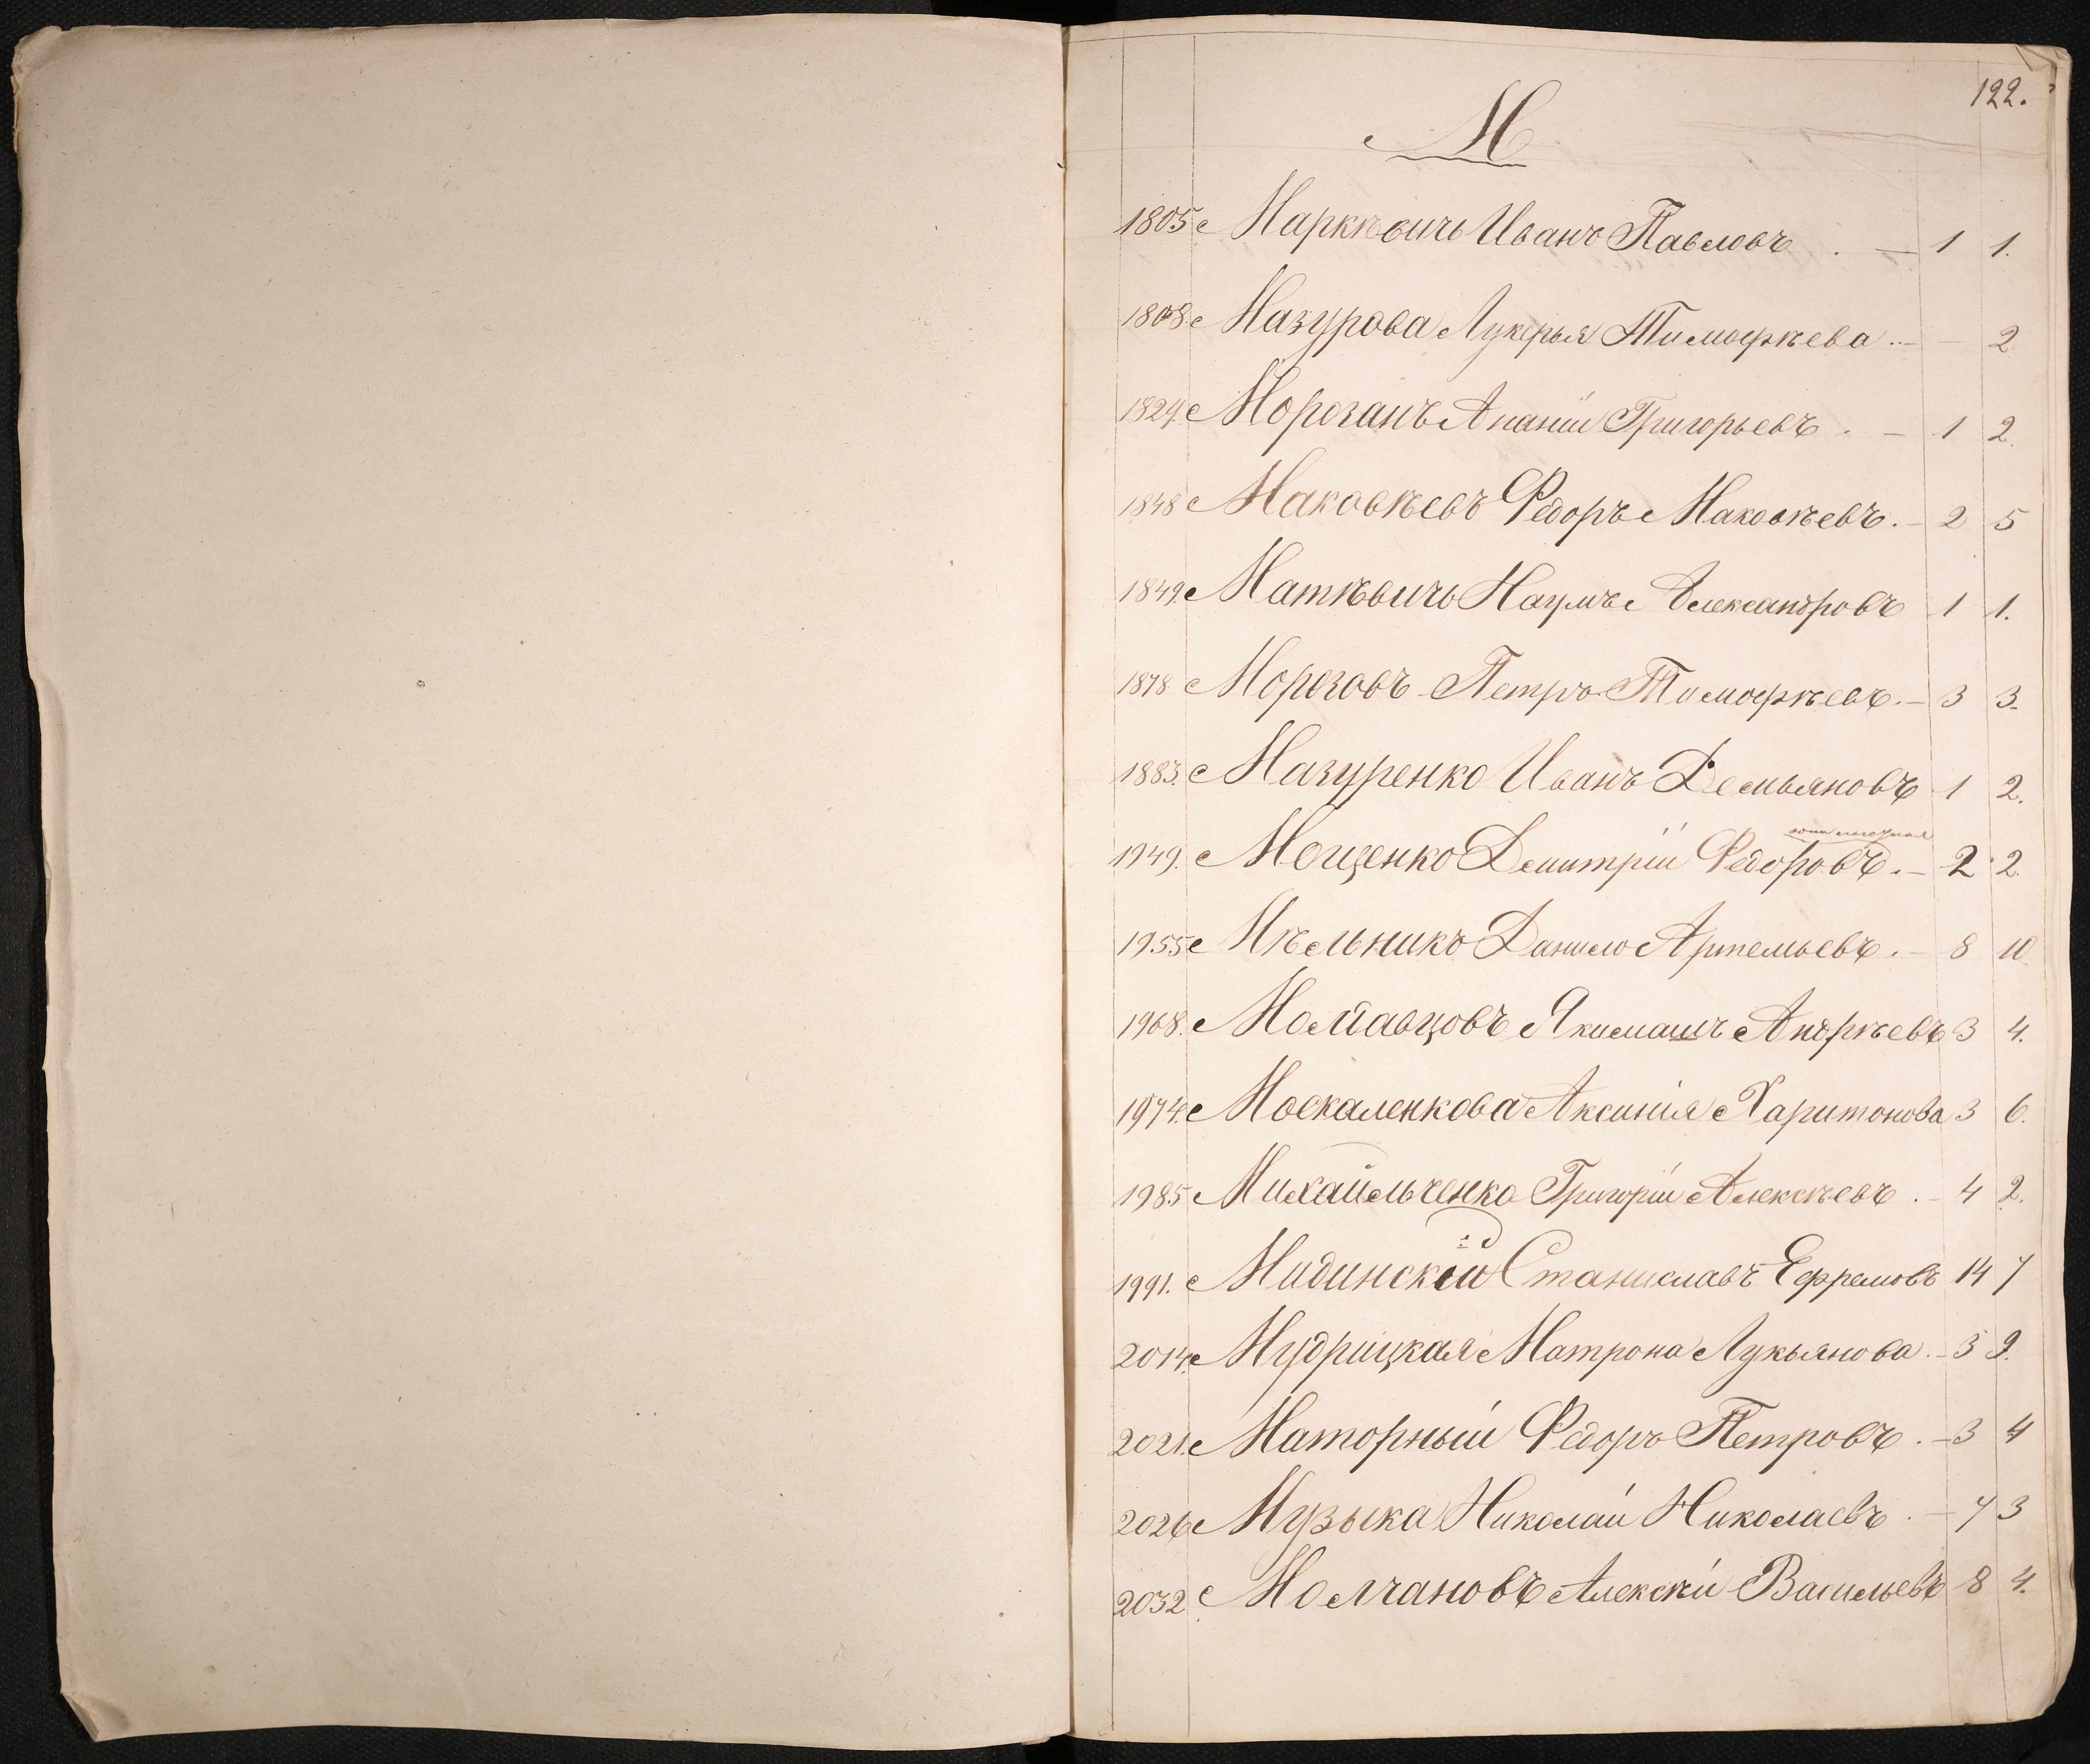 122.
М
1805 Маркѣвичъ Иванъ Павловъ . — 1 1.
1808. Мазурова Лукерья Тимофѣева . — — 2
1829. Морозанъ Ананій Григорьевъ . — 1 2.
1848 Маковѣевъ Федоръ Маковѣевъ . — 2 5
1849. Маткѣвичъ Наумъ Александровъ 1 1.
1878 Морозовъ Петръ Тимофѣевъ . — 3 3.
1883. Мазуренко Иванъ Демьяновъ 1 2.
1949. Мощенко Димитрій Федоровъ . — 2 2.
1955 Мѣльникъ Данило Артемьевъ . — 8 10
1968. Молдавцовъ Якимашъ Андрѣевъ 3 4.
1974. Москаленкова Аксинія Харитонова 3 6.
1985 Михайльченко Григорій Алексѣевъ . — 4 2.
1991. Мидинскій Станиславъ Ефремовъ 14 7
2014. Мудрицкая Матрона Лукьянова . — 3 9.
2021. Маторный Федоръ Петровъ . — 3 4
2026 Музыка Николай Николаевъ . — 7 3
2032 Молчановъ Алексѣй Васильевъ 8 4.